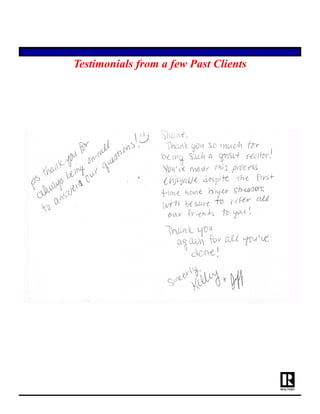 Testimonials from a few Past Clients
ps thank you for
always being on call
to answer our questions!
Shane,
Thank you so much for
being such a great realtor!
You've made this process
enjoyable despite the first
time home buyer stresses
We'll be sure to refer all
our friends to you!
Thank you
again for all you've
done!
Sincerely,
Kelley + Jeff
R
REALTOR®